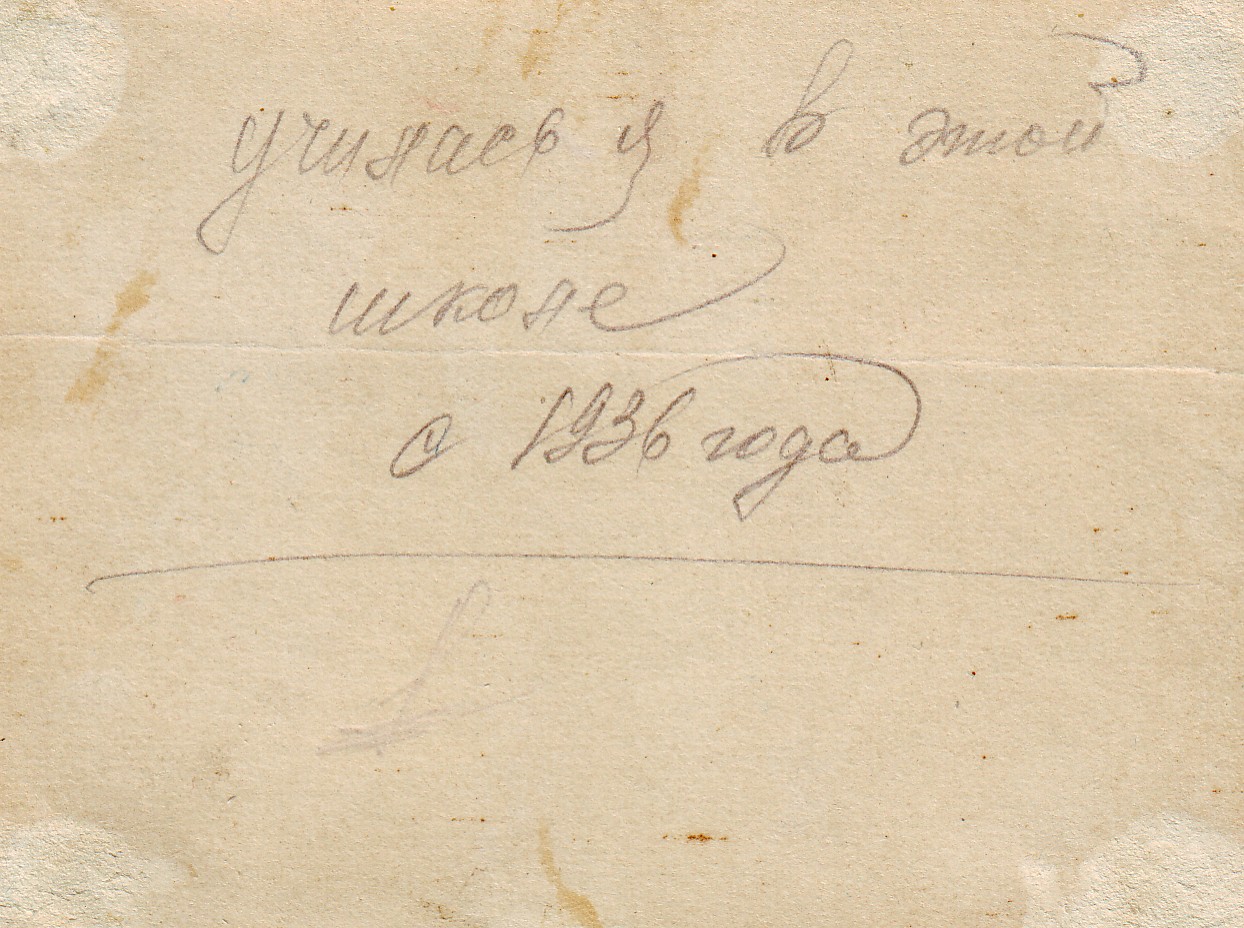 училась я в этой
школе
с 1936 года